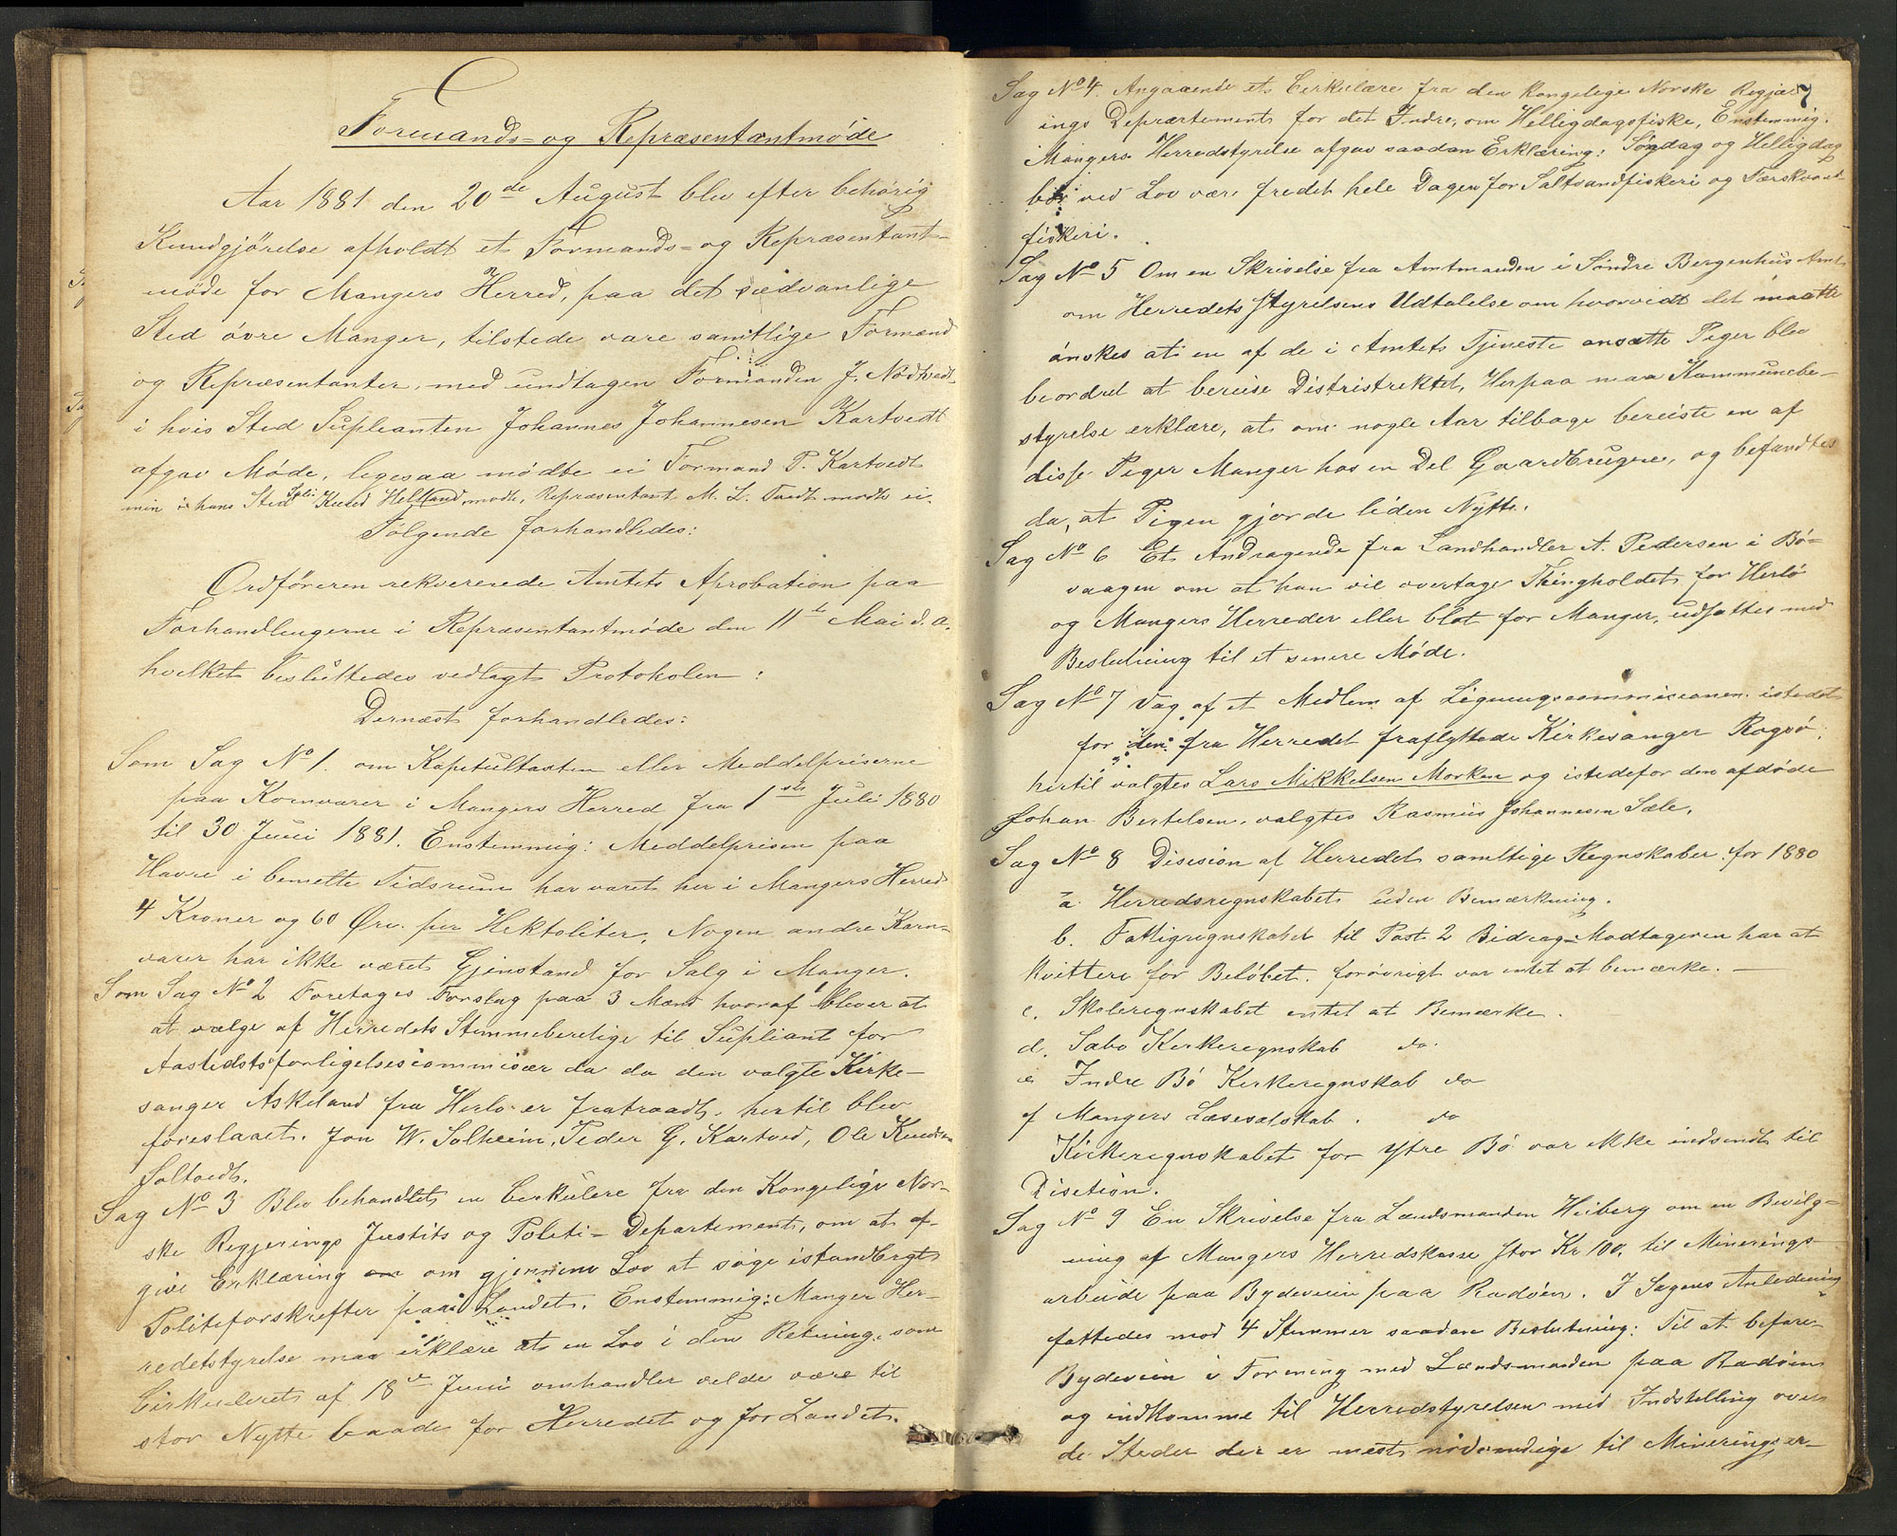 Formands- og Repræsentantmøde
Aar 1881 den 20de August blev efter behørig
Kundgjørelse afholdt et Formands- og Repræsentant-
møde for Mangers Herred, paa det sædvanlige
Sted øvre Manger, tilstede vare samtlige Formænd
og Repræsentanter, med undtagen Formanden J. Nødtvedt
i hvis Sted Suplianten Johannes Johannesen Kartvedt
afgav Møde, ligesaa mødte ei Formand P. Kartvedt
min i hans Sted Spli Knud Helland mødte, Repræsentant M. L. Tvedt mødte ei.
Følgende forhandledes:
Ordføreren rekvererede Amtets Aprobation paa
Forhandlingerne i Repræsentantmøde den 11te Mai d. A.
hvilket besluttedes vedlagt Protokolen:
Dernæst forhandledes:
Som Sag No 1. om Kapitultaxten eller Meddelpriserne
paa Kornvarer i Mangers Herred fra 1ste Juli 1880
til 30 Juni 1881. Enstemmig: Meddelprisen paa
Havre i bemelte Tidsrum har været her i Mangers Herred
4 Kroner og 60 Øre. per Hektoliter, Nogen andre Korn-
varer har ikke været Gjenstand for Salg i Manger.
Som Sag No 2 Foretages Forslag paa 3 Mænd hvoraf bliver at
at vælge af Herredets Stemmeberetige til Supliant for
Aastedsforligelsescommisær da da den valgte Kirke-
sanger Askeland fra Herlø er fratraadt, hertil blev
foreslaaet. Jon W. Solheim, Peder G. Kartved, Ole Knudsen
Soltvedt.
Sag No 3 Blev behandlet en Cirkulere fra den Kongelige Nor-
ske Regjerings Justits og Politi-Departement, om at af-
give Erklæring om om gjennem Lov at søge istandbragt
Politiforskrefter paa Landet. Enstemmig: Manger Her-
redetstyrelse maa erklære at en Lov i den Retning, som
Cirkuleret af 18de Juni omhandler vilde være til
stor Nytte baade for Herredet og for Landet.
7
Sag No 4. Angaaende et Cirkulære fra den Kongelige Norske Regjær-
ings Deprærtement for det Indre, om Helligdagsfiske, Enstemmig.
Mangers Herredstyrelse afgav saadan Erklæring: Søndag og Helligdag
bør ved Lov være fredet hele Dagen for Saltvandfiskeri og Færskvand
fiskeri.
Sag No 5 Om en Skrivelse fra Amtmanden i Søndre Bergenhus Amt
om Herredets Styrelsens Udtalelse om hvorvidt det maatte
ønskes at en af de i Amtets Tjeneste ansatte Piger blev
beordret at bereise Distristriktet, Herpaa maa Kommunebe-
styrelse erklære, at om nogle Aar tilbage bereiste en af
disse Piger Manger hos en Del Gaardbrugere, og befandtes
da, at Pigen gjorde liden Nytte.
Sag No 6 Et Andragende fra Landhandler A. Pedersen i Bø-
vaagen om at han vil overtage Thingholdet for Herlø
og Mangers Herreder eller blot for Manger, udsattes med
Beslutning til et senere Møde.
Sag No 7 Vag af et Medlem af Ligningscommisionen istedet
for den fra Herredet fraflyttede Kirkesanger Rogsø,
hertil valgtes Lars Mikkelsen Morken og istedefor den afdøde
Johan Bertelsen, valgtes Rasmus Johannesen Sæle.
Sag No 8 Disision af Herredet samltige Regnskaber for 1880
a. Herredsregnskabet uden Bemærkning.
b. Fattigregnskabet til Post 2 Bidrag-Modtageren har at
Kvittere for Beløbet. forøvrigt var intet at bemærke. —
c. Skoleregnskabet intet at Bemærke.
d. Sæbo Kirkeregnskab do
e Indre Bø Kirkeregnskab do
f Mangers Læseselskab. do
Kirkeregnskabet for Ytre Bø var ikke indsendt til
Disition.
Sag No 9 En Skrivelse fra Lændsmanden Heiberg om en Bevilg-
ning af Mangers Herredskasse stor Kr 100, til Minerings-
arbeide paa Bydeveien paa Radøen. I Sagens Anledning
fattedes mod 4 Stemmer saadan Beslutning: Til at befare
Bydeveien i Forening med Lændsmanden paa Radøen
og indkomme til Herredstyrelsen med Indstelling over
de Steder der er mest nødvendige til Mineringser-